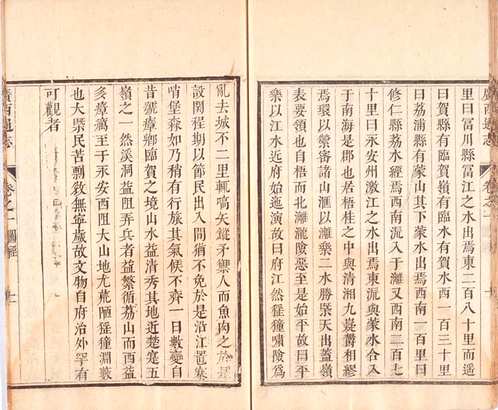 里曰富川縣富江之水出焉東二百八十里而遥
曰賀縣有臨賀嶺有臨水有賀水西一百三十里
曰荔浦縣有蒙山其下蒙水出焉西南一百里曰
修仁縣荔水經焉西南流入于灕又西南二百七
十里曰永安州激江之水出焉東流與蒙水合入
于南海是郡也若梧桂之中與清湘九嶷欝相繆
焉環以縈審諸山滙以灕樂二水勝槩天出蓋嶺
表要領也自梧而北灘瀧險惡至是始平故曰平
樂以江水近府始迤演故曰府江然猺獞嘯險為
亂去城不二里輒嗃矢鏦矛禦人而魚肉之
設關程期以節民出入間猶不免於是沿江置寨
啃堡森如乃稍有行旅其氣候不齊一日數變自
昔號瘴鄉臨賀之境山水益清秀其地近楚寔五
嶺之一然溪洞益阻弄兵者益繁循荔山而西益
多瘴癘至于永安西阻大山地尤荒陋猺獞淵藪
也大槩民苦剽敓無寧歲故文物自府治外罕有
可觀者
廣西通志
卷之一
圖經
十一